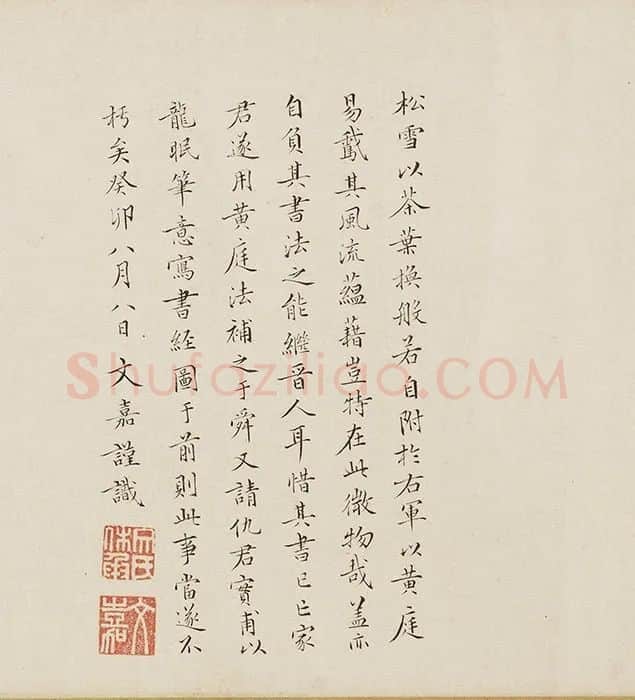 松雪以茶葉換般若自附於右軍以黃庭
易鵞其風流蘊藉豈特在此微物哉蓋亦
自負其書法之能繼晉人耳惜其書已亡家
君遂用黃庭法補之于舜又請仇君實甫以
龍眠筆意寫書経圖于前則此事當遂不
朽矣癸卯八月八日文嘉謹識
文嘉
Shufaziliao.COM